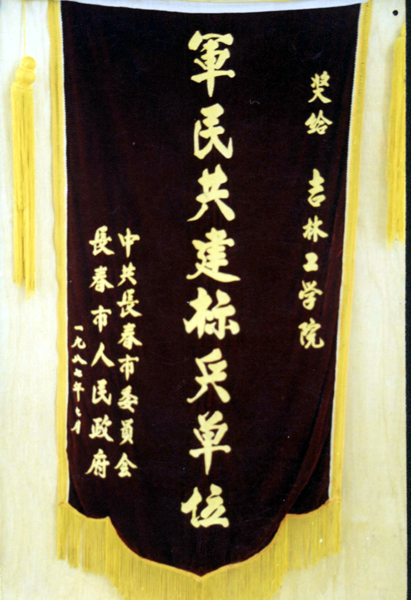 奖给 吉林工学院
軍民共建标兵单位
中共長春市委員会
長春市人民政府
一九八七年七月